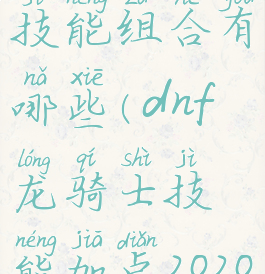 jì néng zǔ hé yǒu
技能组合有
nǎ xiē
哪些(dnf
lóng qí shì jì
龙骑士技
néng jiā diǎn
能加点2020